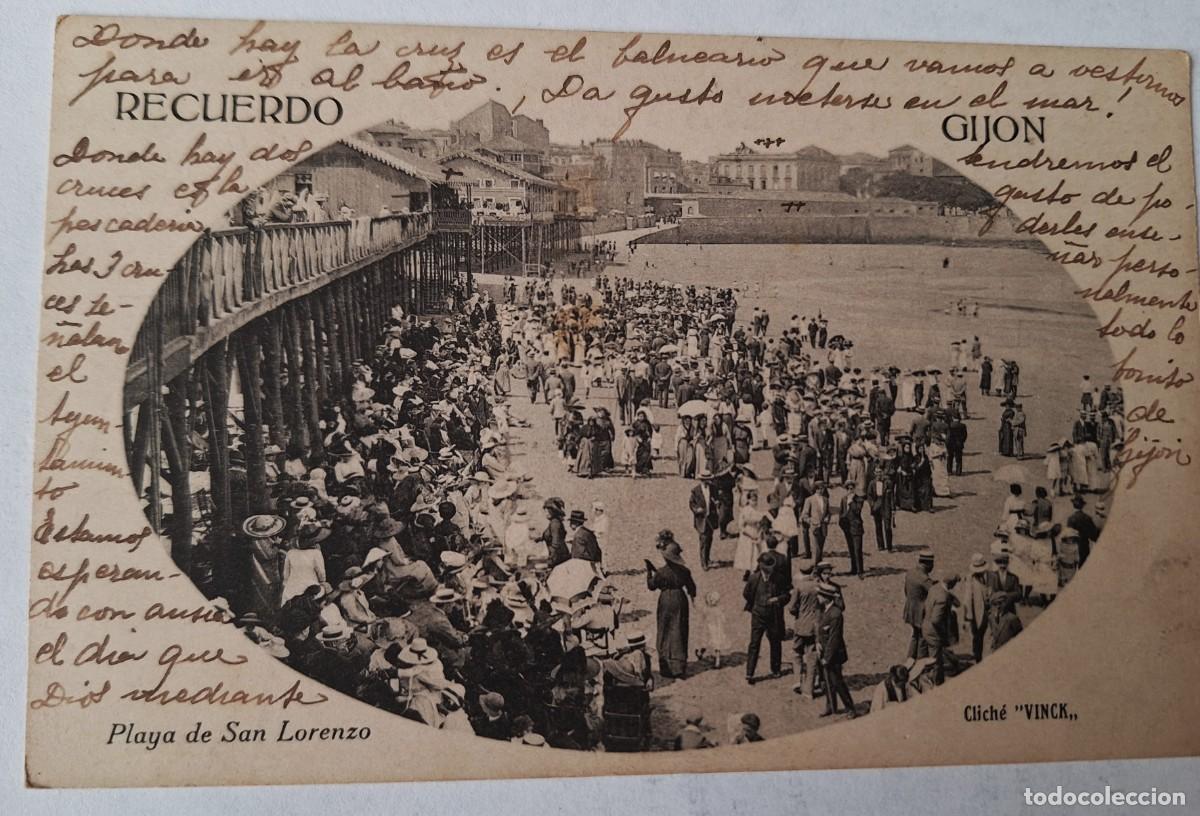 Donde hay la cruz es el balneario que vamos a vestirnos
para ir al baño. ¡Da gusto meterse en el mar!
RECUERDO
GIJON
Donde hay dos
cruces es la
pescadería
las 3 cru-
ces se-
ñalan
el
Ayun-
tamien
to
Estamos
esperan-
do con ansia
el dia que
Dios mediante
tendremos el
gusto de po-
derles ense-
ñar perso-
nalmente
todo lo
bonito
de
Gijón
Playa de San Lorenzo
Cliché "VINCK„
todocoleccion